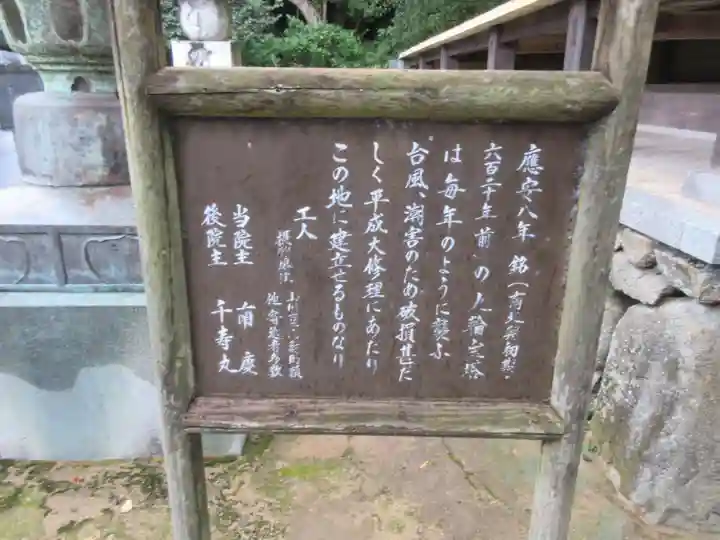 應安八年 銘(南北朝初期・
六百二十年前)の人輪宝塔
は毎年のように襲ふ
台風、潮害のため破損甚だ
しく平成大修理にあたり
この地に建立せるものなり
工人
他寄進者多数
当院主 宥慶
後院主 千寿丸